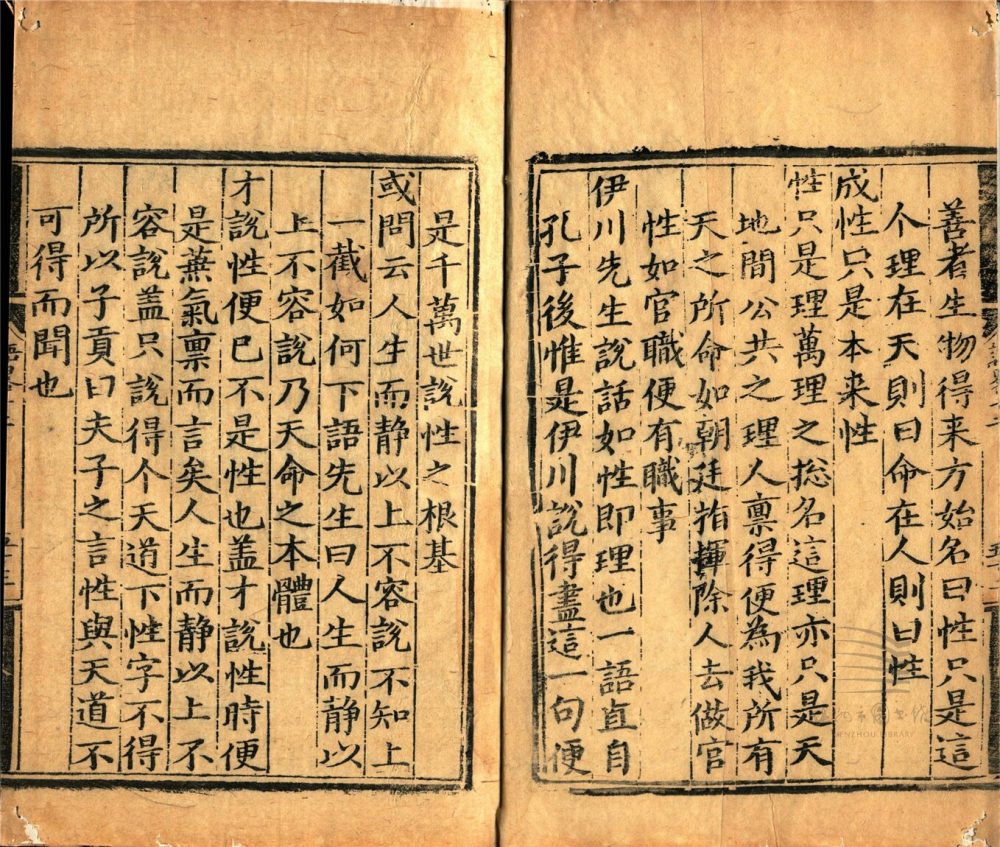 善者生物得来方始名曰性只是這
个理在天則曰命在人則曰性
成性只是本来性
性只是理萬理之揔名這理亦只是天
地間公共之理人稟得便為我所有
天之所命如朝廷指揮除人去做官
性如官職便有職事
伊川先生說話如性即理也一語直自
孔子後惟是伊川說得盡這一句便
是千萬世說性之根基
或問云人生而静以上不容說不知上
一截如何下語先生曰人生而静以
上不容說乃天命之本體也
才說性便已不是性也盖才說性時便
是蕪氣稟而言矣人生而静以上不
容說盖只說得个天道下性字不得
所以子貢曰夫子之言性與天道不
可得而聞也